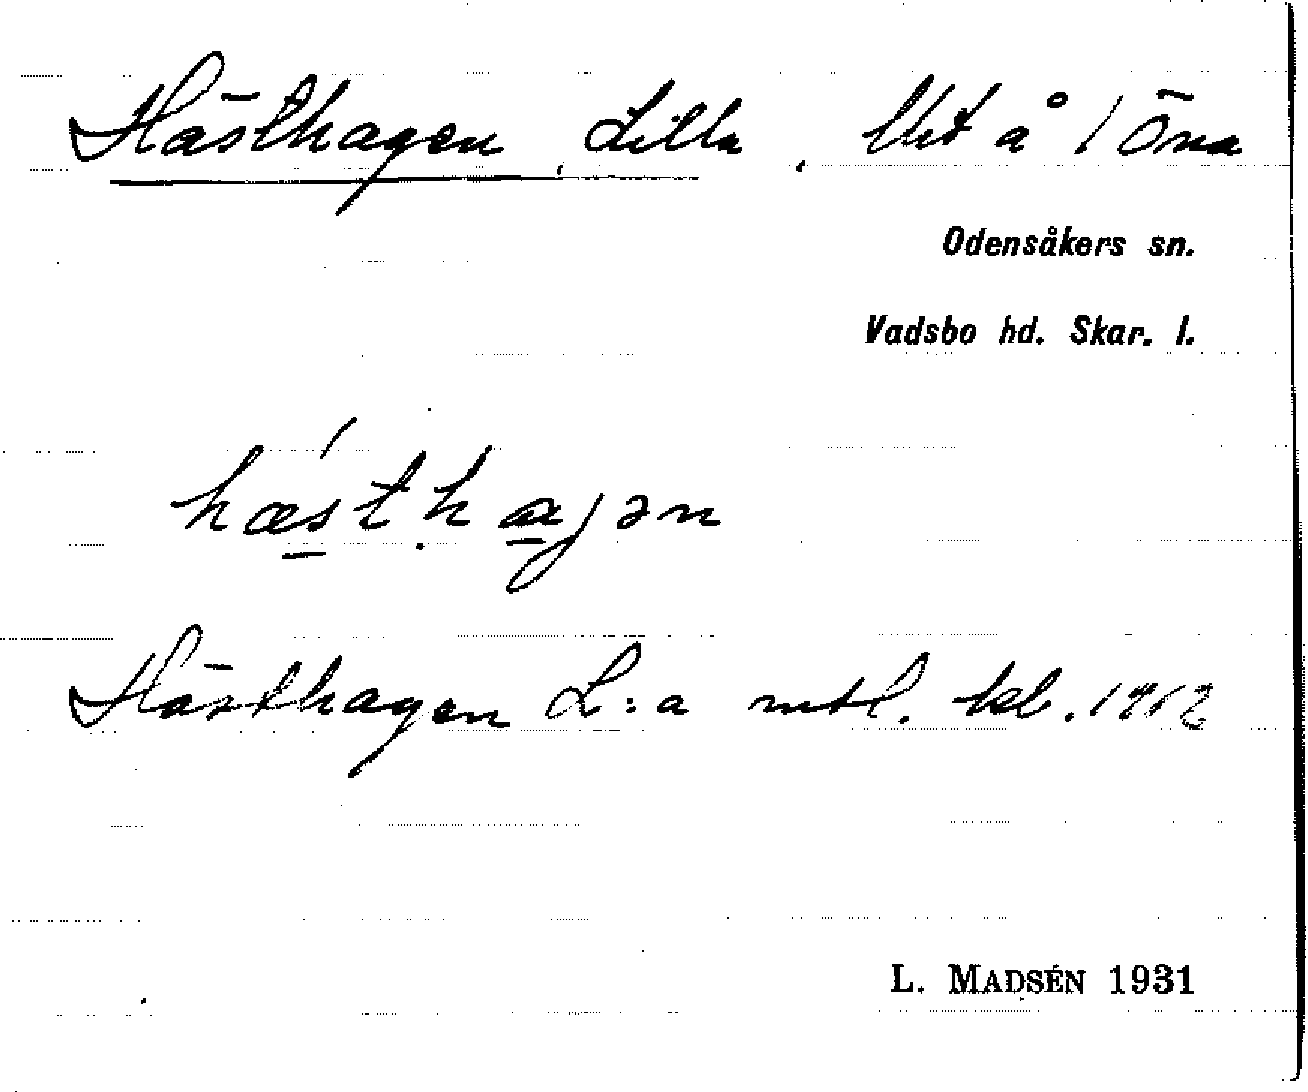 Hästhagen, Lilla, lht å 1 Öna
Odensåkers sn.
Vadsbo hd. Skar. l.
hæst.hagən
Hästhagen L:a mtl. kb. 1912
L. MADSÉN 1931